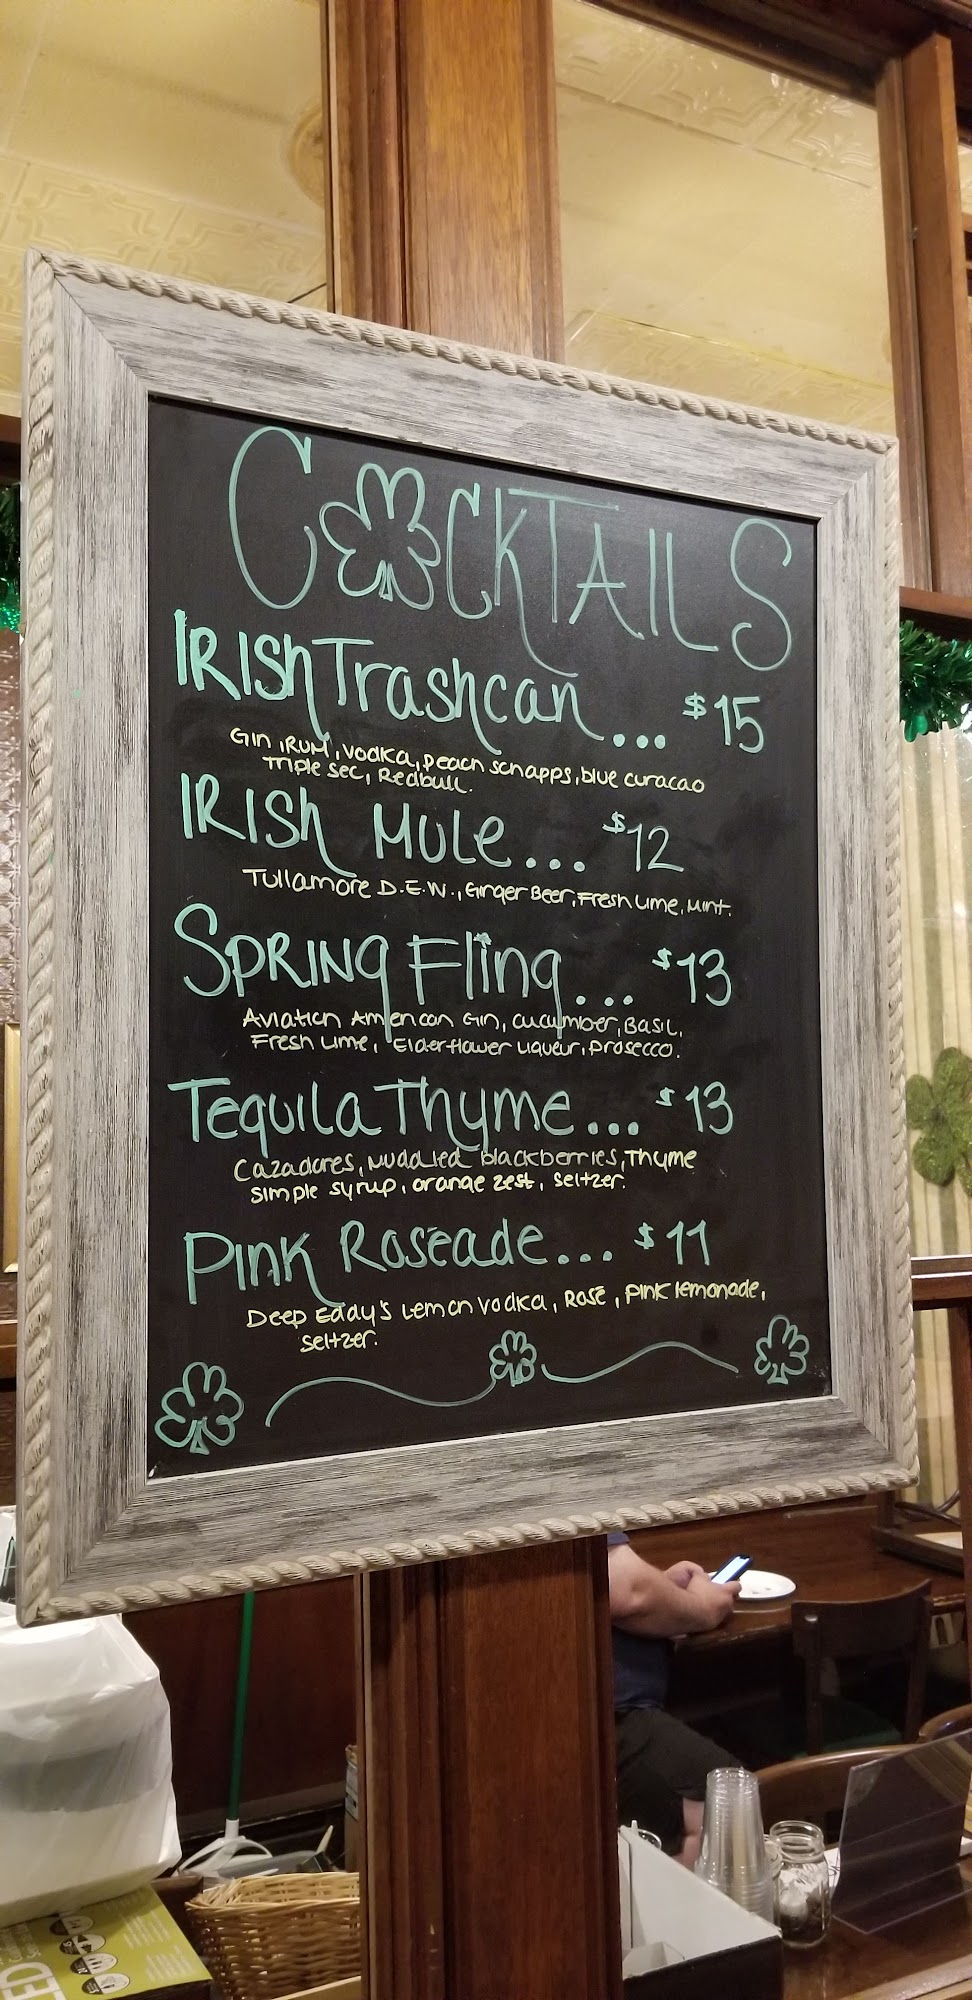 COCKTAILS
IRISh Trashcan... $15
Gin, RUM, Vodka, peach schapps, blue curacao
Triple sec, Redbull.
IRISh MULe... $12
Tullamore D.E.W., Ginger Beer, Fresh Lime, Mint.
SPRINg Fling... $13
Aviation American Gin, cucumber, Basil,
Fresh Lime, Elderflower Liqueur, Prosecco.
Tequila Thyme... $13
Cazadores, Muddled blackberries, Thyme
simple syrup, orange zest, seltzer.
PINK Roséade... $11
Deep Eddy's Lemon Vodka, Rosé, Pink lemonade,
seltzer.